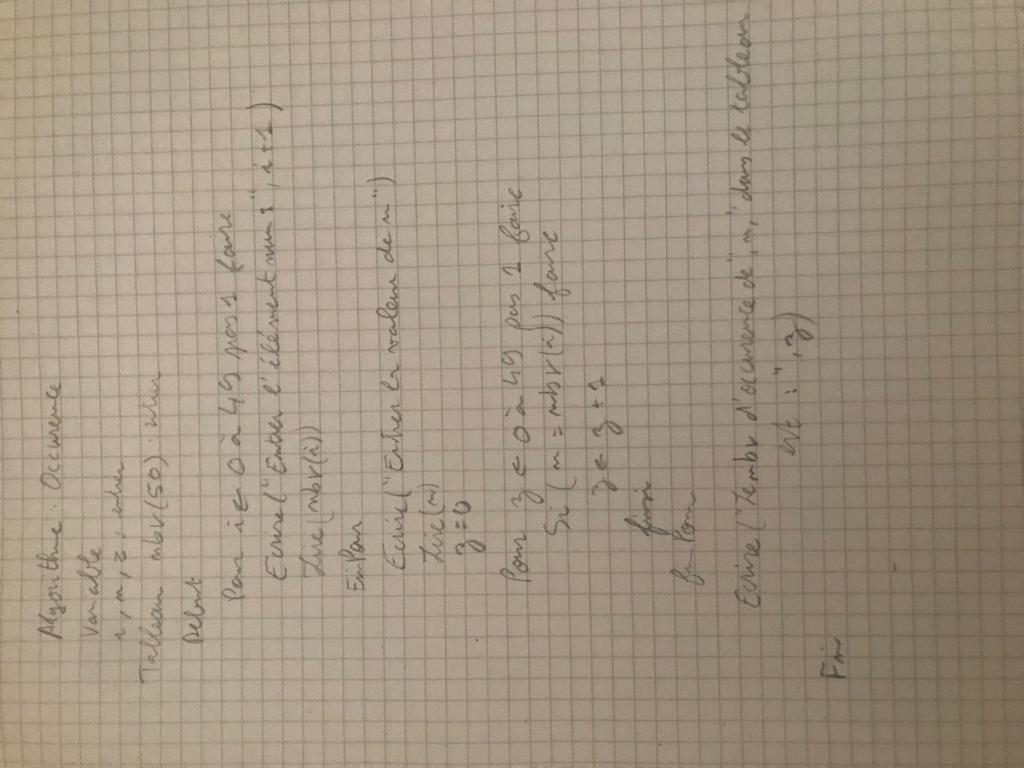 Algorithme : Occurence
Variable
i, n, z : entier
Tableau nbr(50) : entier
Debut
Pour i ← 0 à 49 pas 1 faire
Ecrire("Entrer l'élément num :", i+1)
Lire(nbr(i))
FinPour
Ecrire("Entrer la valeur de n")
Lire(n)
z = 0
Pour z ← 0 à 49 pas 1 faire
Si (n = nbr(i)) faire
z ← z + 1
finsi
fin Pour
Ecrire("Le nbr d'occurence de", n, "dans le tableau
est : ", z)
Fin